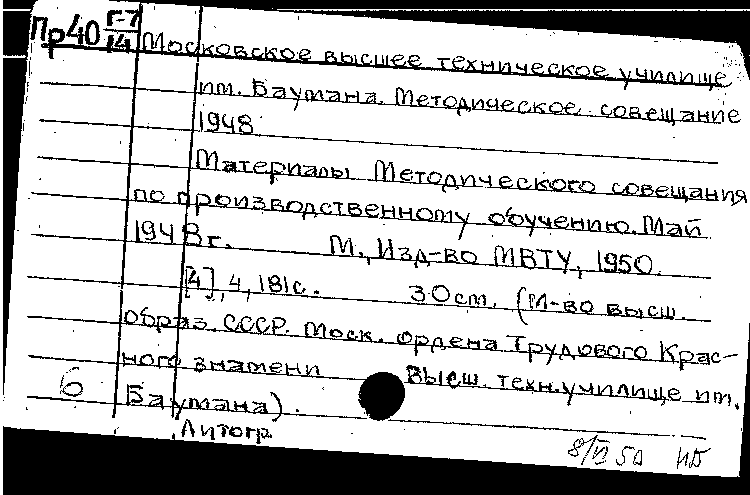 Пр40 Г-7/14 Московское высшее техническое училище
им. Баумана. Методическое совещание
1948
Материалы Методического совещания
по производственному обучению. Май
1948г. М., Изд-во МВТУ, 1950.
[4], 4, 181с. 30см. (М-во высш.
образ. СССР. Моск. ордена Трудового Крас-
ного знамени высш. техн. училище им.
б Баумана).
Литогр.
8/VI 50